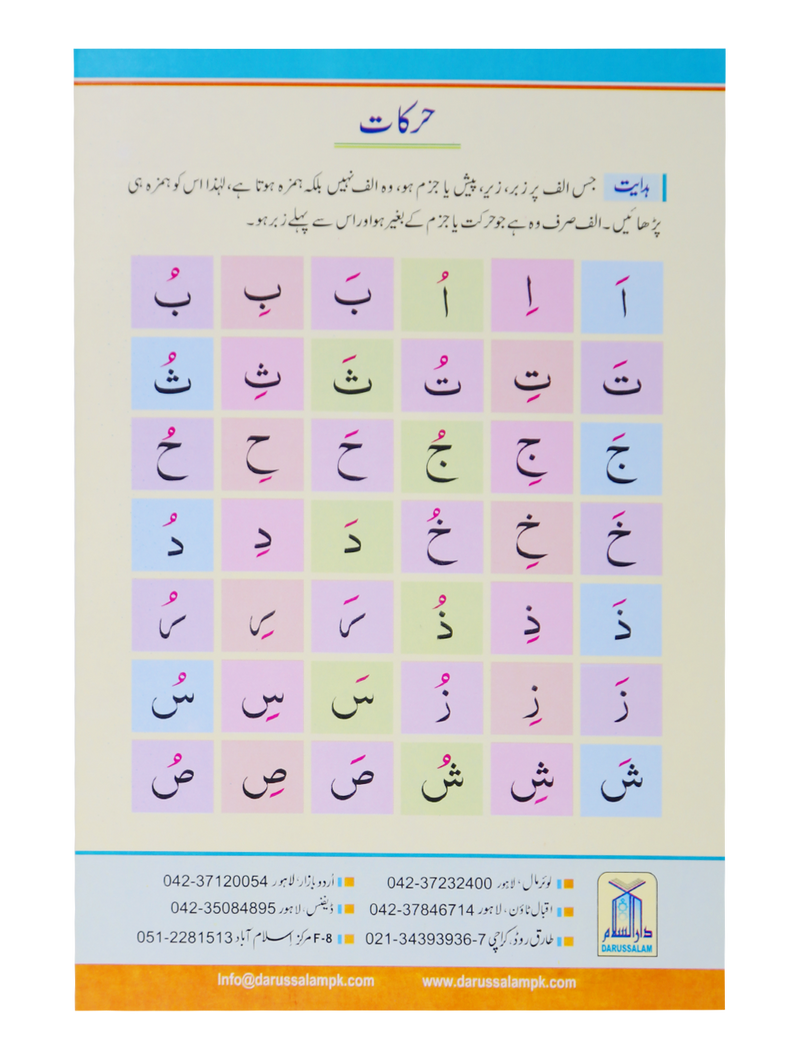 حرکات
ہدایت جس الف پر زبر، زیر، پیش یا جزم ہو، وہ الف نہیں بلکہ ہمزہ ہوتا ہے، لہٰذا اس کو ہمزہ ہی
پڑھائیں۔ الف صرف وہ ہے جو حرکت یا جزم کے بغیر ہو اور اس سے پہلے زبر ہو۔
اَ اِ اُ بَ بِ بُ
تَ تِ تُ ثَ ثِ ثُ
جَ جِ جُ حَ حِ حُ
خَ خِ خُ دَ دِ دُ
ذَ ذِ ذُ رَ رِ رُ
زَ زِ زُ سَ سِ سُ
شَ شِ شُ صَ صِ صُ
لوئر مال، لاہور 042-37232400 اُردو بازار، لاہور 042-37120054
اقبال ٹاؤن، لاہور 042-37846714 ڈیفنس، لاہور 042-35084895
طارق روڈ، کراچی 021-34393936-7 F-8 مرکز اسلام آباد 051-2281513
دارالسلام
DARUSSALAM
info@darussalampk.com www.darussalampk.com